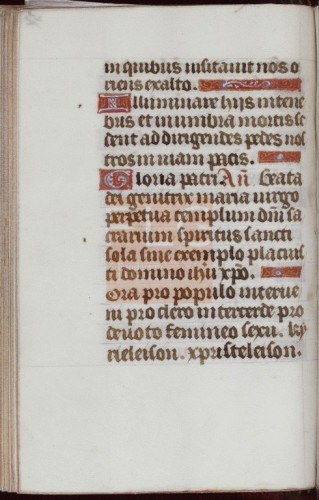 in quibus uisitauit nos o
riens exalto.
Illuminare hiis in tene
bris et in umbra mortis se
dent ad dirigendes pedes nos
tros in uiam pacis.
Gloria patri An̄. Beata
dei genitrix maria uirgo
perpetua templum dn̄i sa
crarium spiritus sancti
sola sine exemplo placuis
ti domino ihū xpō.
Ora pro populo interue
ni pro clero intercede pro
deuoto femineo sexu. ky
rieleison. xpristeleison.